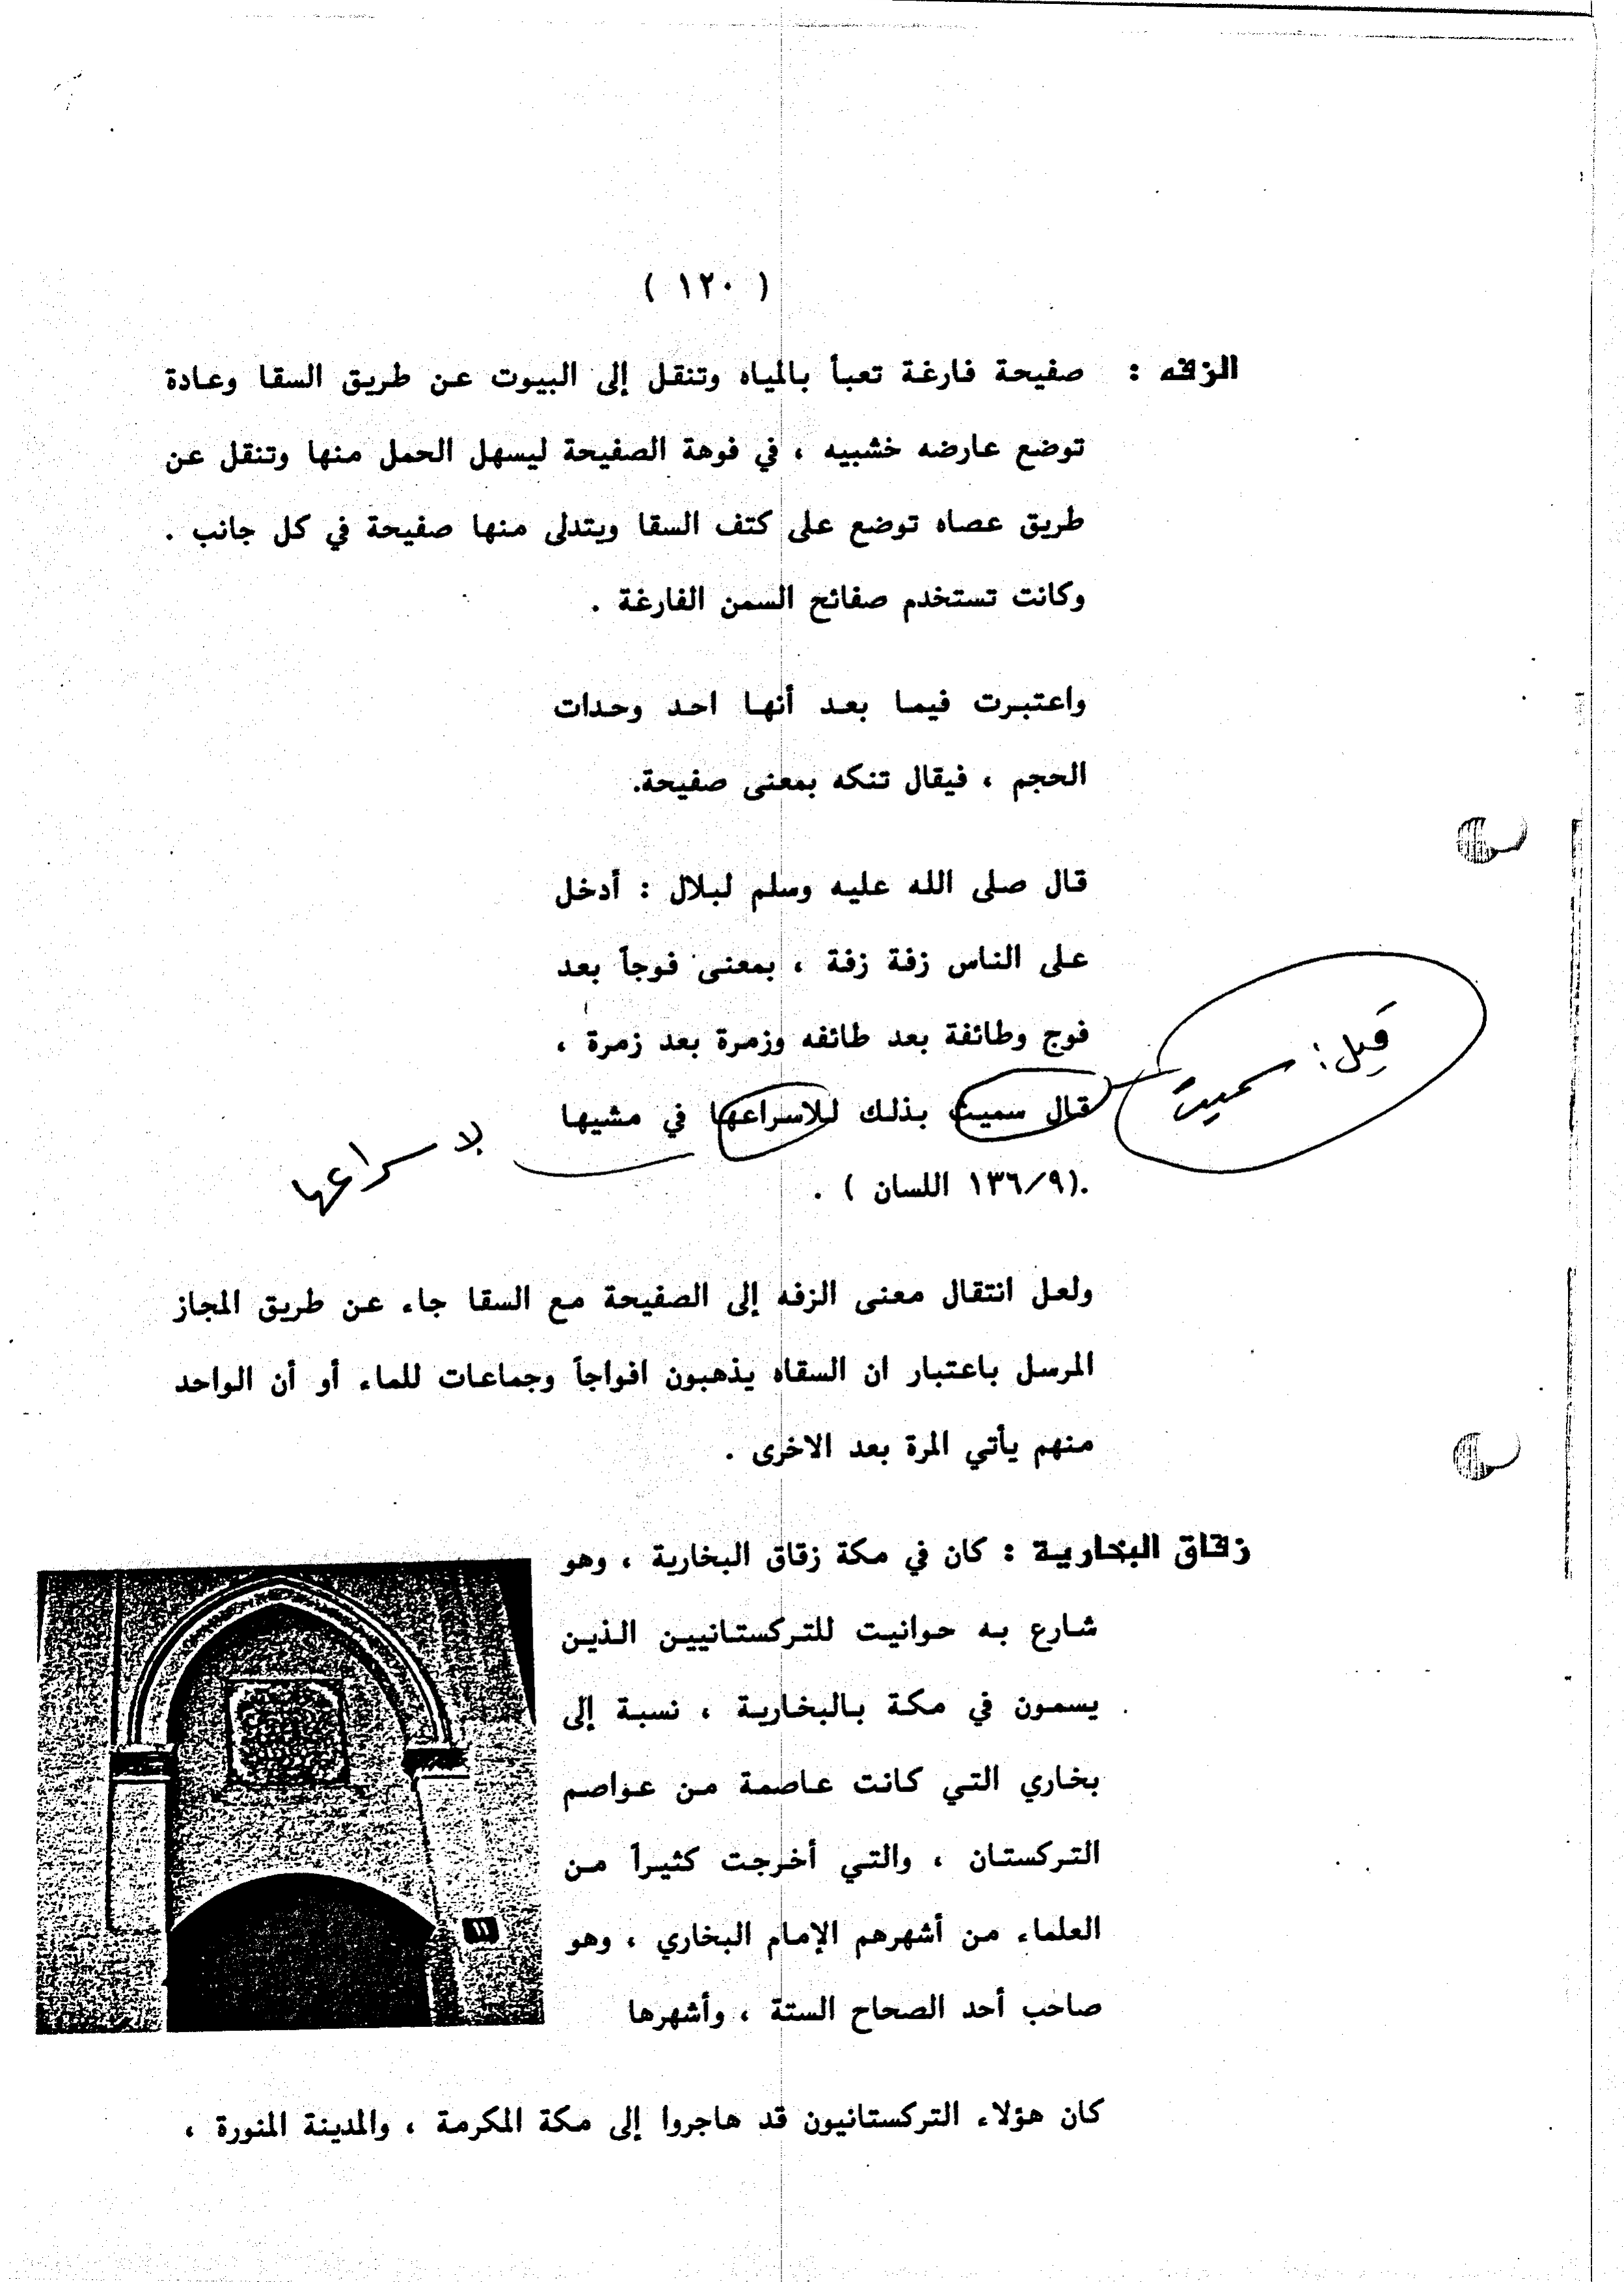 ( ١٢٠ )
الزفه : صفيحة فارغة تعبأ بالمياه وتنقل إلى البيوت عن طريق السقا وعادة
توضع عارضه خشبيه ، في فوهة الصفيحة ليسهل الحمل منها وتنقل عن
طريق عصاه توضع على كتف السقا ويتدلى منها صفيحة في كل جانب .
وكانت تستخدم صفائح السمن الفارغة .
واعتبرت فيما بعد أنها احد وحدات
الحجم ، فيقال تنكه بمعنى صفيحة.
قال صلى الله عليه وسلم لبلال : أدخل
على الناس زفة زفة ، بمعنى فوجاً بعد
فوج وطائفة بعد طائفه وزمرة بعد زمرة ،
قيل : سميت
قال سميت بذلك للاسراعها في مشيها
لاسراعها
.(١٣٦/٩ اللسان ) .
ولعل انتقال معنى الزفه إلى الصفيحة مع السقا جاء عن طريق المجاز
المرسل باعتبار ان السقاه يذهبون افواجاً وجماعات للماء أو أن الواحد
منهم يأتي المرة بعد الاخرى .
زقاق البخارية : كان في مكة زقاق البخارية ، وهو
شارع به حوانيت للتركستانيين الذين
يسمون في مكة بالبخارية ، نسبة إلى
بخاري التي كانت عاصمة من عواصم
التركستان ، والتي أخرجت كثيراً من
العلماء من أشهرهم الإمام البخاري ، وهو
صاحب أحد الصحاح الستة ، وأشهرها
١١
كان هؤلاء التركستانيون قد هاجروا إلى مكة المكرمة ، والمدينة المنورة ،